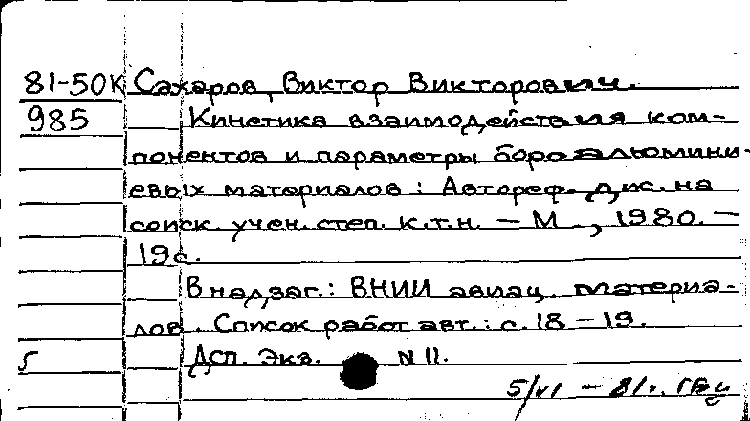 81-50К Сахаров, Виктор Викторович.
985 Кинетика взаимодействия ком-
понентов и параметры бороалюмини-
евых материалов : Автореф. дис. на
соиск. учен. степ. к.т.н. – М., 1980. –
19с.
В надзаг.: ВНИИ авиац. материа-
лов. Список работ авт.: с. 18 – 19.
5 Дсп. Экз. N 11.
5/VI – 81г.